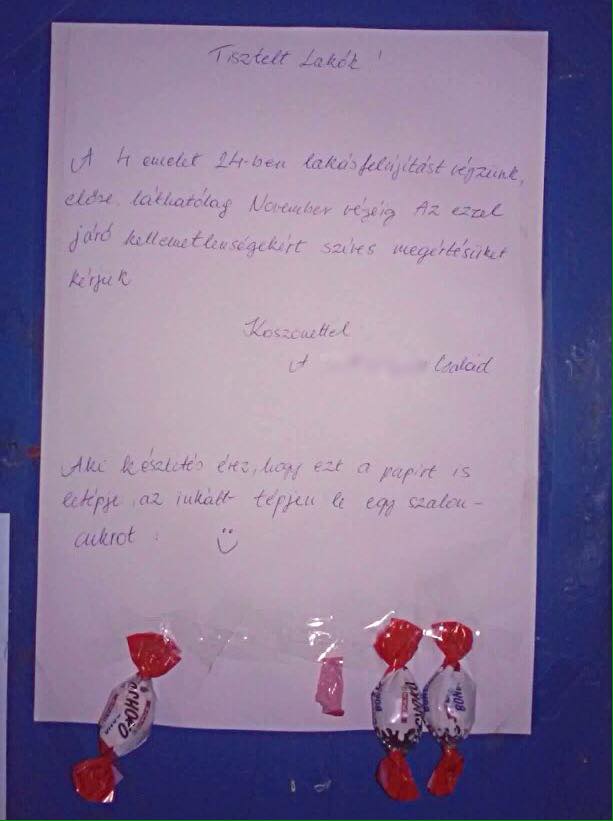 Tisztelt Lakók!
A 4 emelet 24-ben lakásfelújítást végzünk,
előre láthatólag November végéig Az ezzel
járó kellemetlenségekért szíves megértésüket
kérjük
Köszönettel
A Család
Aki késztetés érez, hogy ezt a papírt is
letépje, az inkább tépjen le egy szalon-
cukrot.
CHOCO
BON
BON